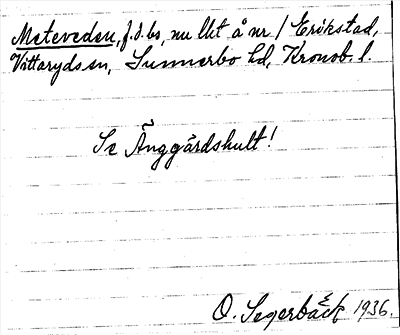 Meteveden, f.d. bs, nu llt å nr 1 Erikstad,
Vittaryds sn, Sunnerbo hd, Kronob. l.
Se Änggårdshult!
O. Segerbäck 1936.